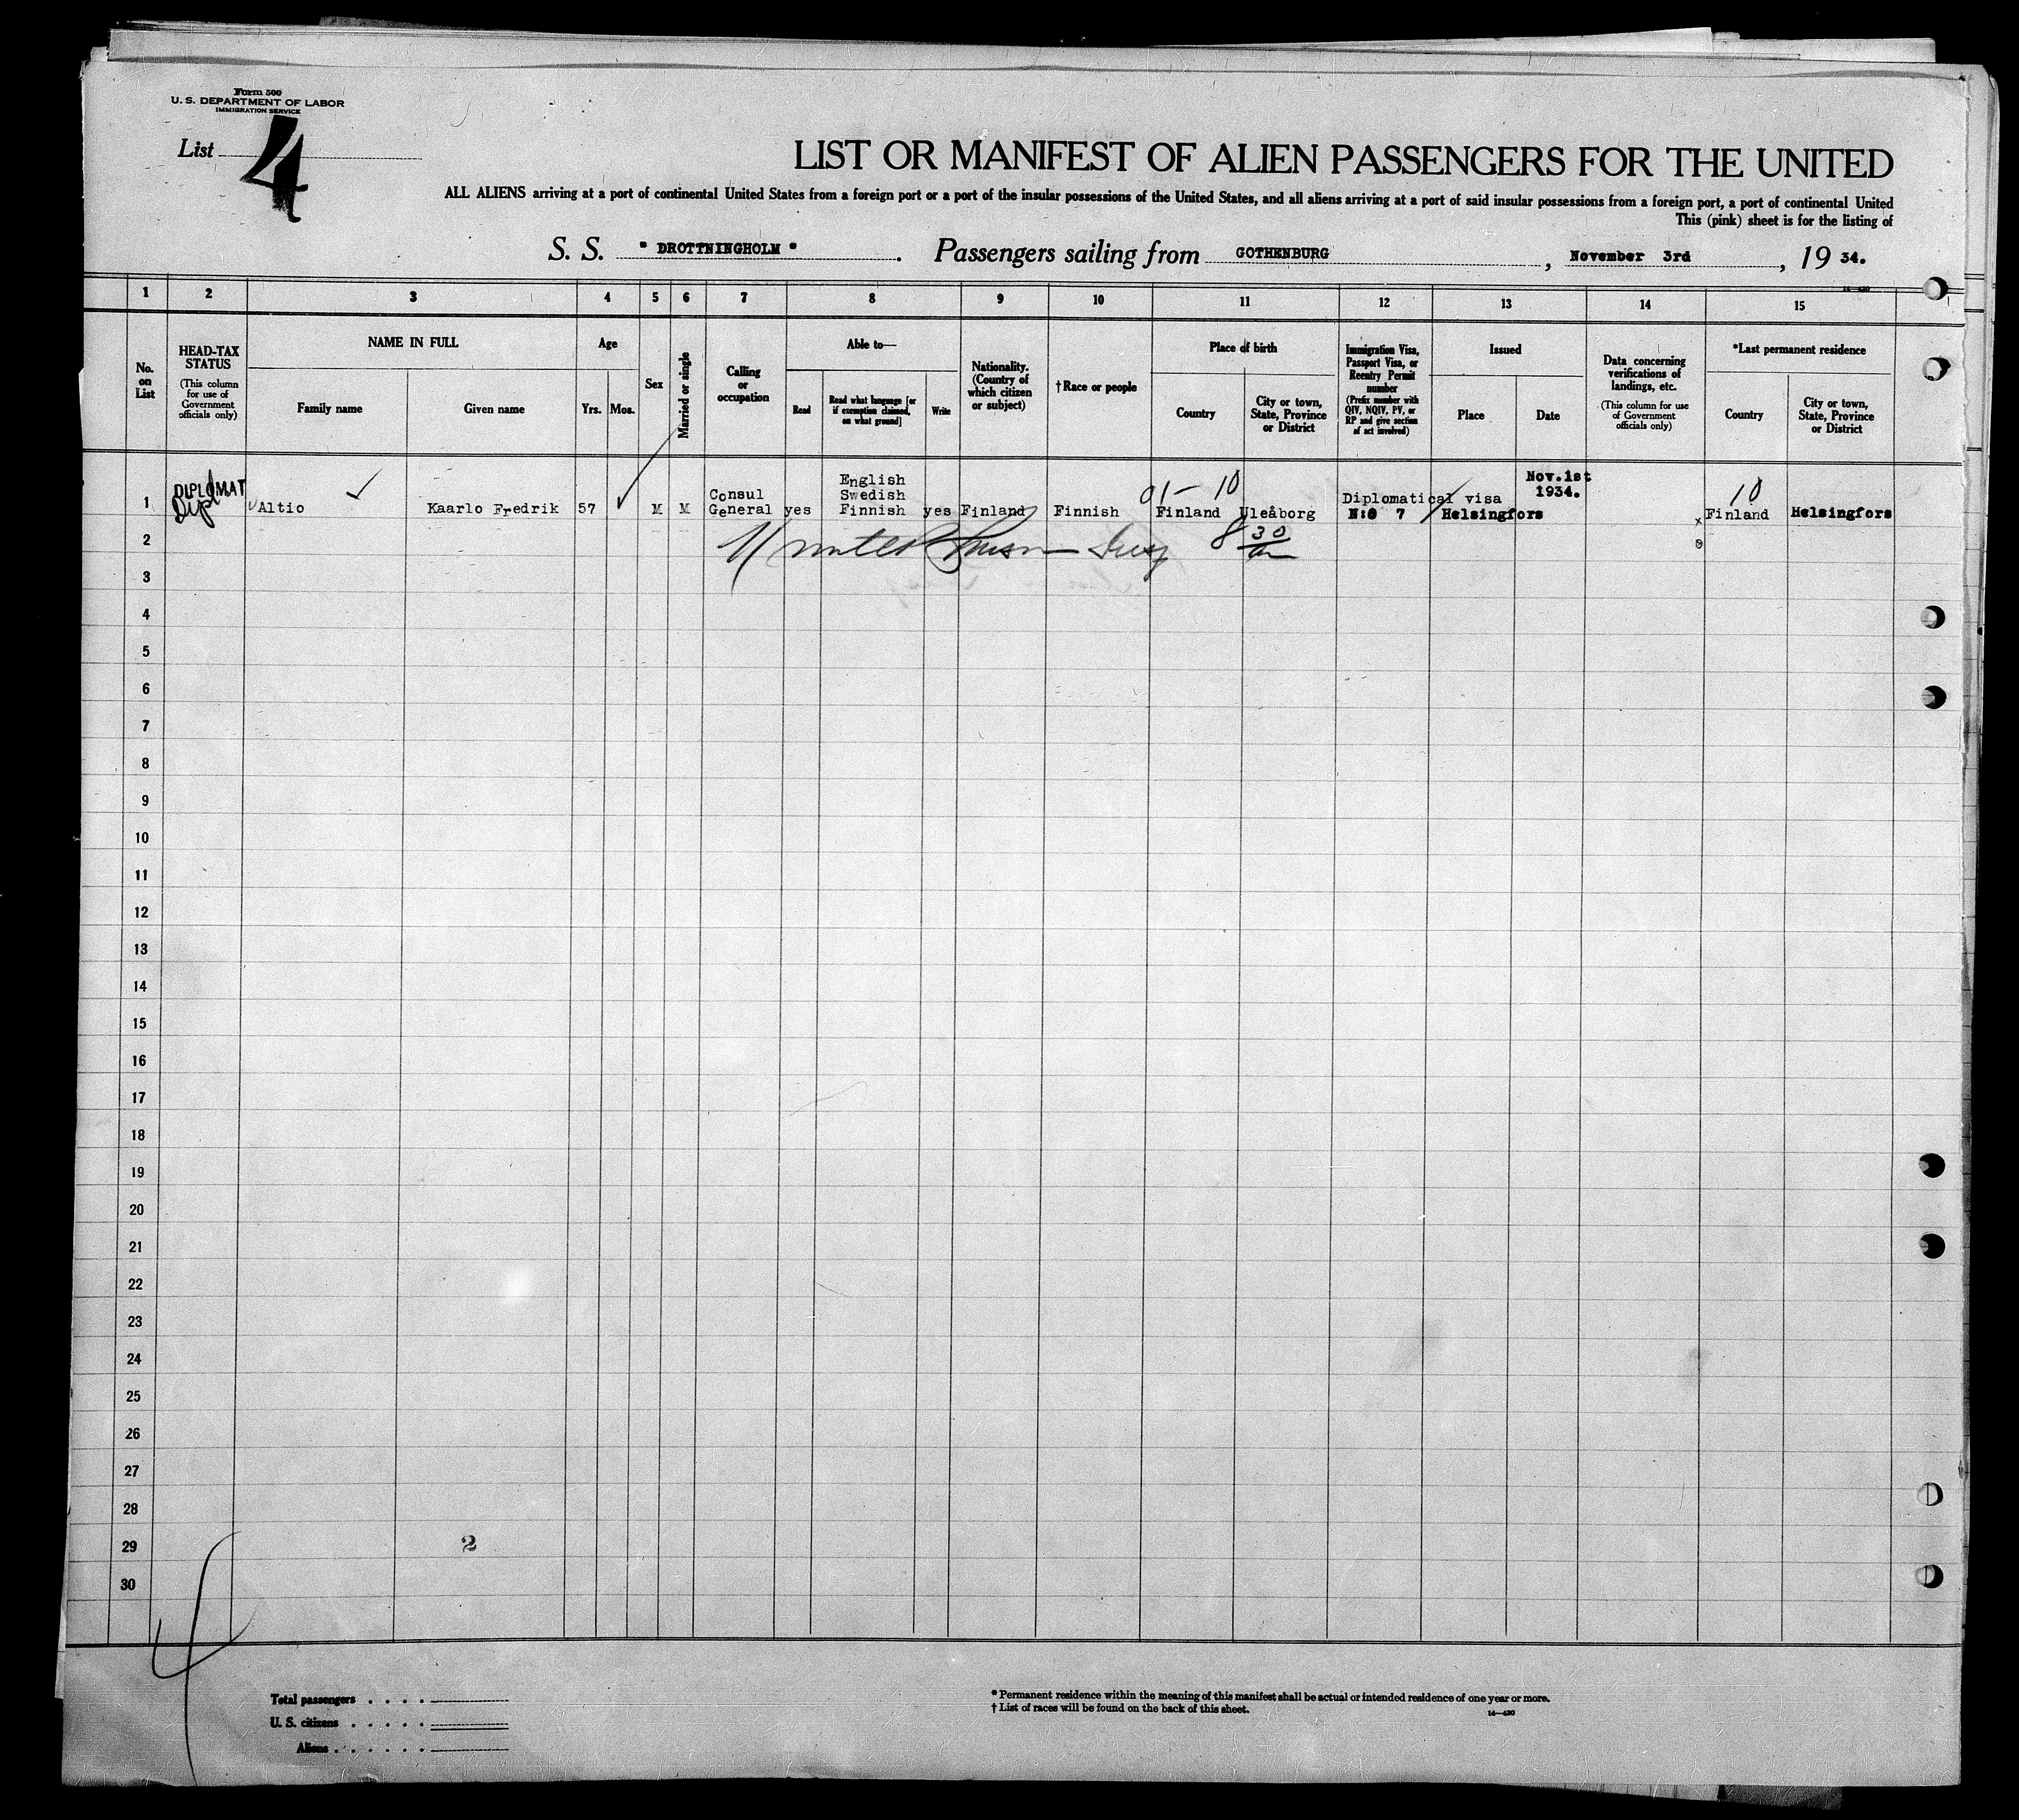 Form 500
U. S. DEPARTMENT OF LABOR
IMMIGRATION SERVICE
List 4
LIST OR MANIFEST OF ALIEN PASSENGERS FOR THE UNITED
ALL ALIENS arriving at a port of continental United States from a foreign port or a port of the insular possessions of the United States, and all aliens arriving at a port of said insular possessions from a foreign port, a port of continental United
This (pink) sheet is for the listing of
S. S. " DROTTNINGHOLM " . Passengers sailing from GOTHENBURG , November 3rd , 19 34.
14—430
1 2 3 4 5 6 7 8 9 10 11 12 13 14 15
No. on List
HEAD-TAX STATUS
(This column for use of Government officials only)
NAME IN FULL
Family name
Given name
Age
Yrs. Mos.
Sex
Married or single
Calling or occupation
Able to—
Read
Read what language [or if exemption claimed, on what ground]
Write
Nationality. (Country of which citizen or subject)
† Race or people
Place of birth
Country
City or town, State, Province or District
Immigration Visa, Passport Visa, or Reentry Permit number
(Prefix number with QIV, NQIV, PV, or RP and give section of act involved)
Issued
Place
Date
Data concerning verifications of landings, etc.
(This column for use of Government officials only)
*Last permanent residence
Country
City or town, State, Province or District
1 DIPLOMAT Dipl Altio Kaarlo Fredrik 57 M M Consul General yes English Swedish Finnish yes Finland Finnish 01- 10 Finland Uleåborg Diplomatical visa N:o 7 Helsingfors Nov.1st 1934. 10 Finland Helsingfors
2 8 30
3
4
5
6
7
8
9
10
11
12
13
14
15
16
17
18
19
20
21
22
23
24
25
26
27
28
29 2
30
4
Total passengers . . . .
U. S. citizens . . . . .
Aliens . . . . . .
* Permanent residence within the meaning of this manifest shall be actual or intended residence of one year or more.
† List of races will be found on the back of this sheet.
14—430